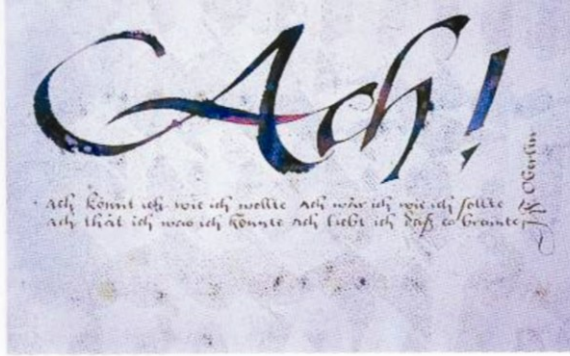 Ach!
Ach könnt ich wie ich wollte Ach wär ich wie ich sollte
Ach thät ich was ich könnte Ach liebt ich daß es brennte
Oberlin